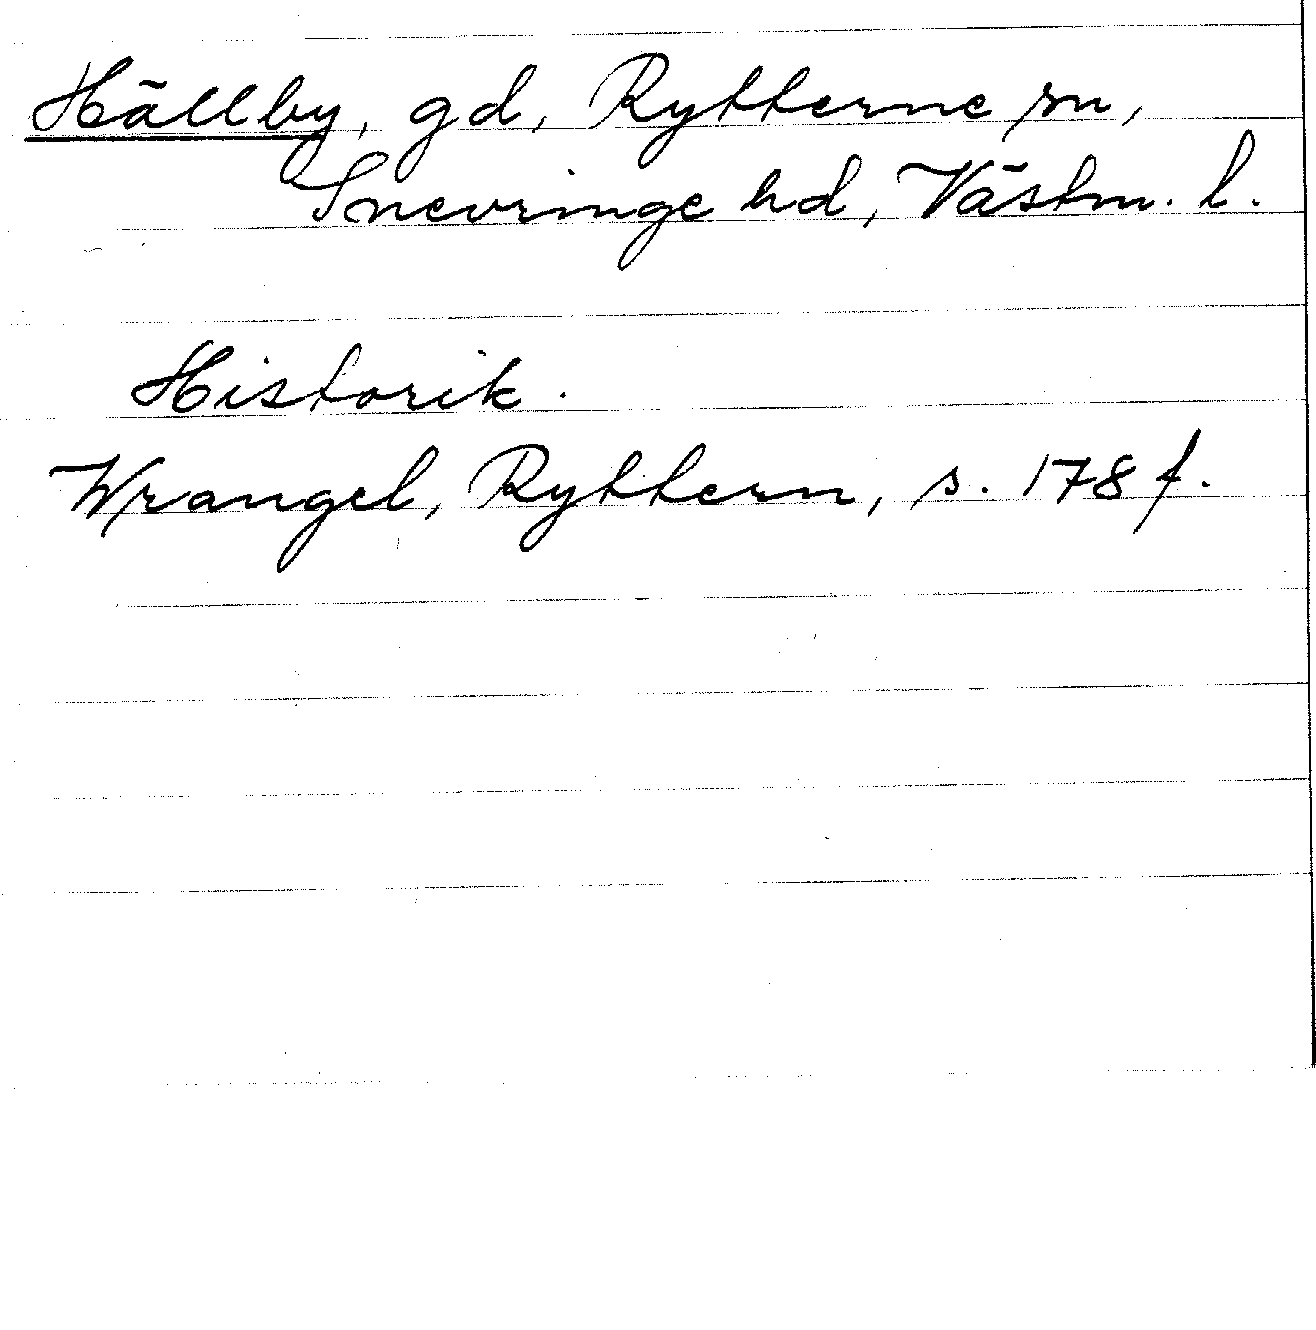 Hällby, gd, Rytterne sn,
Snevringe hd, Västm. l.
Historik.
Wrangel, Ryttern, s. 178 f.